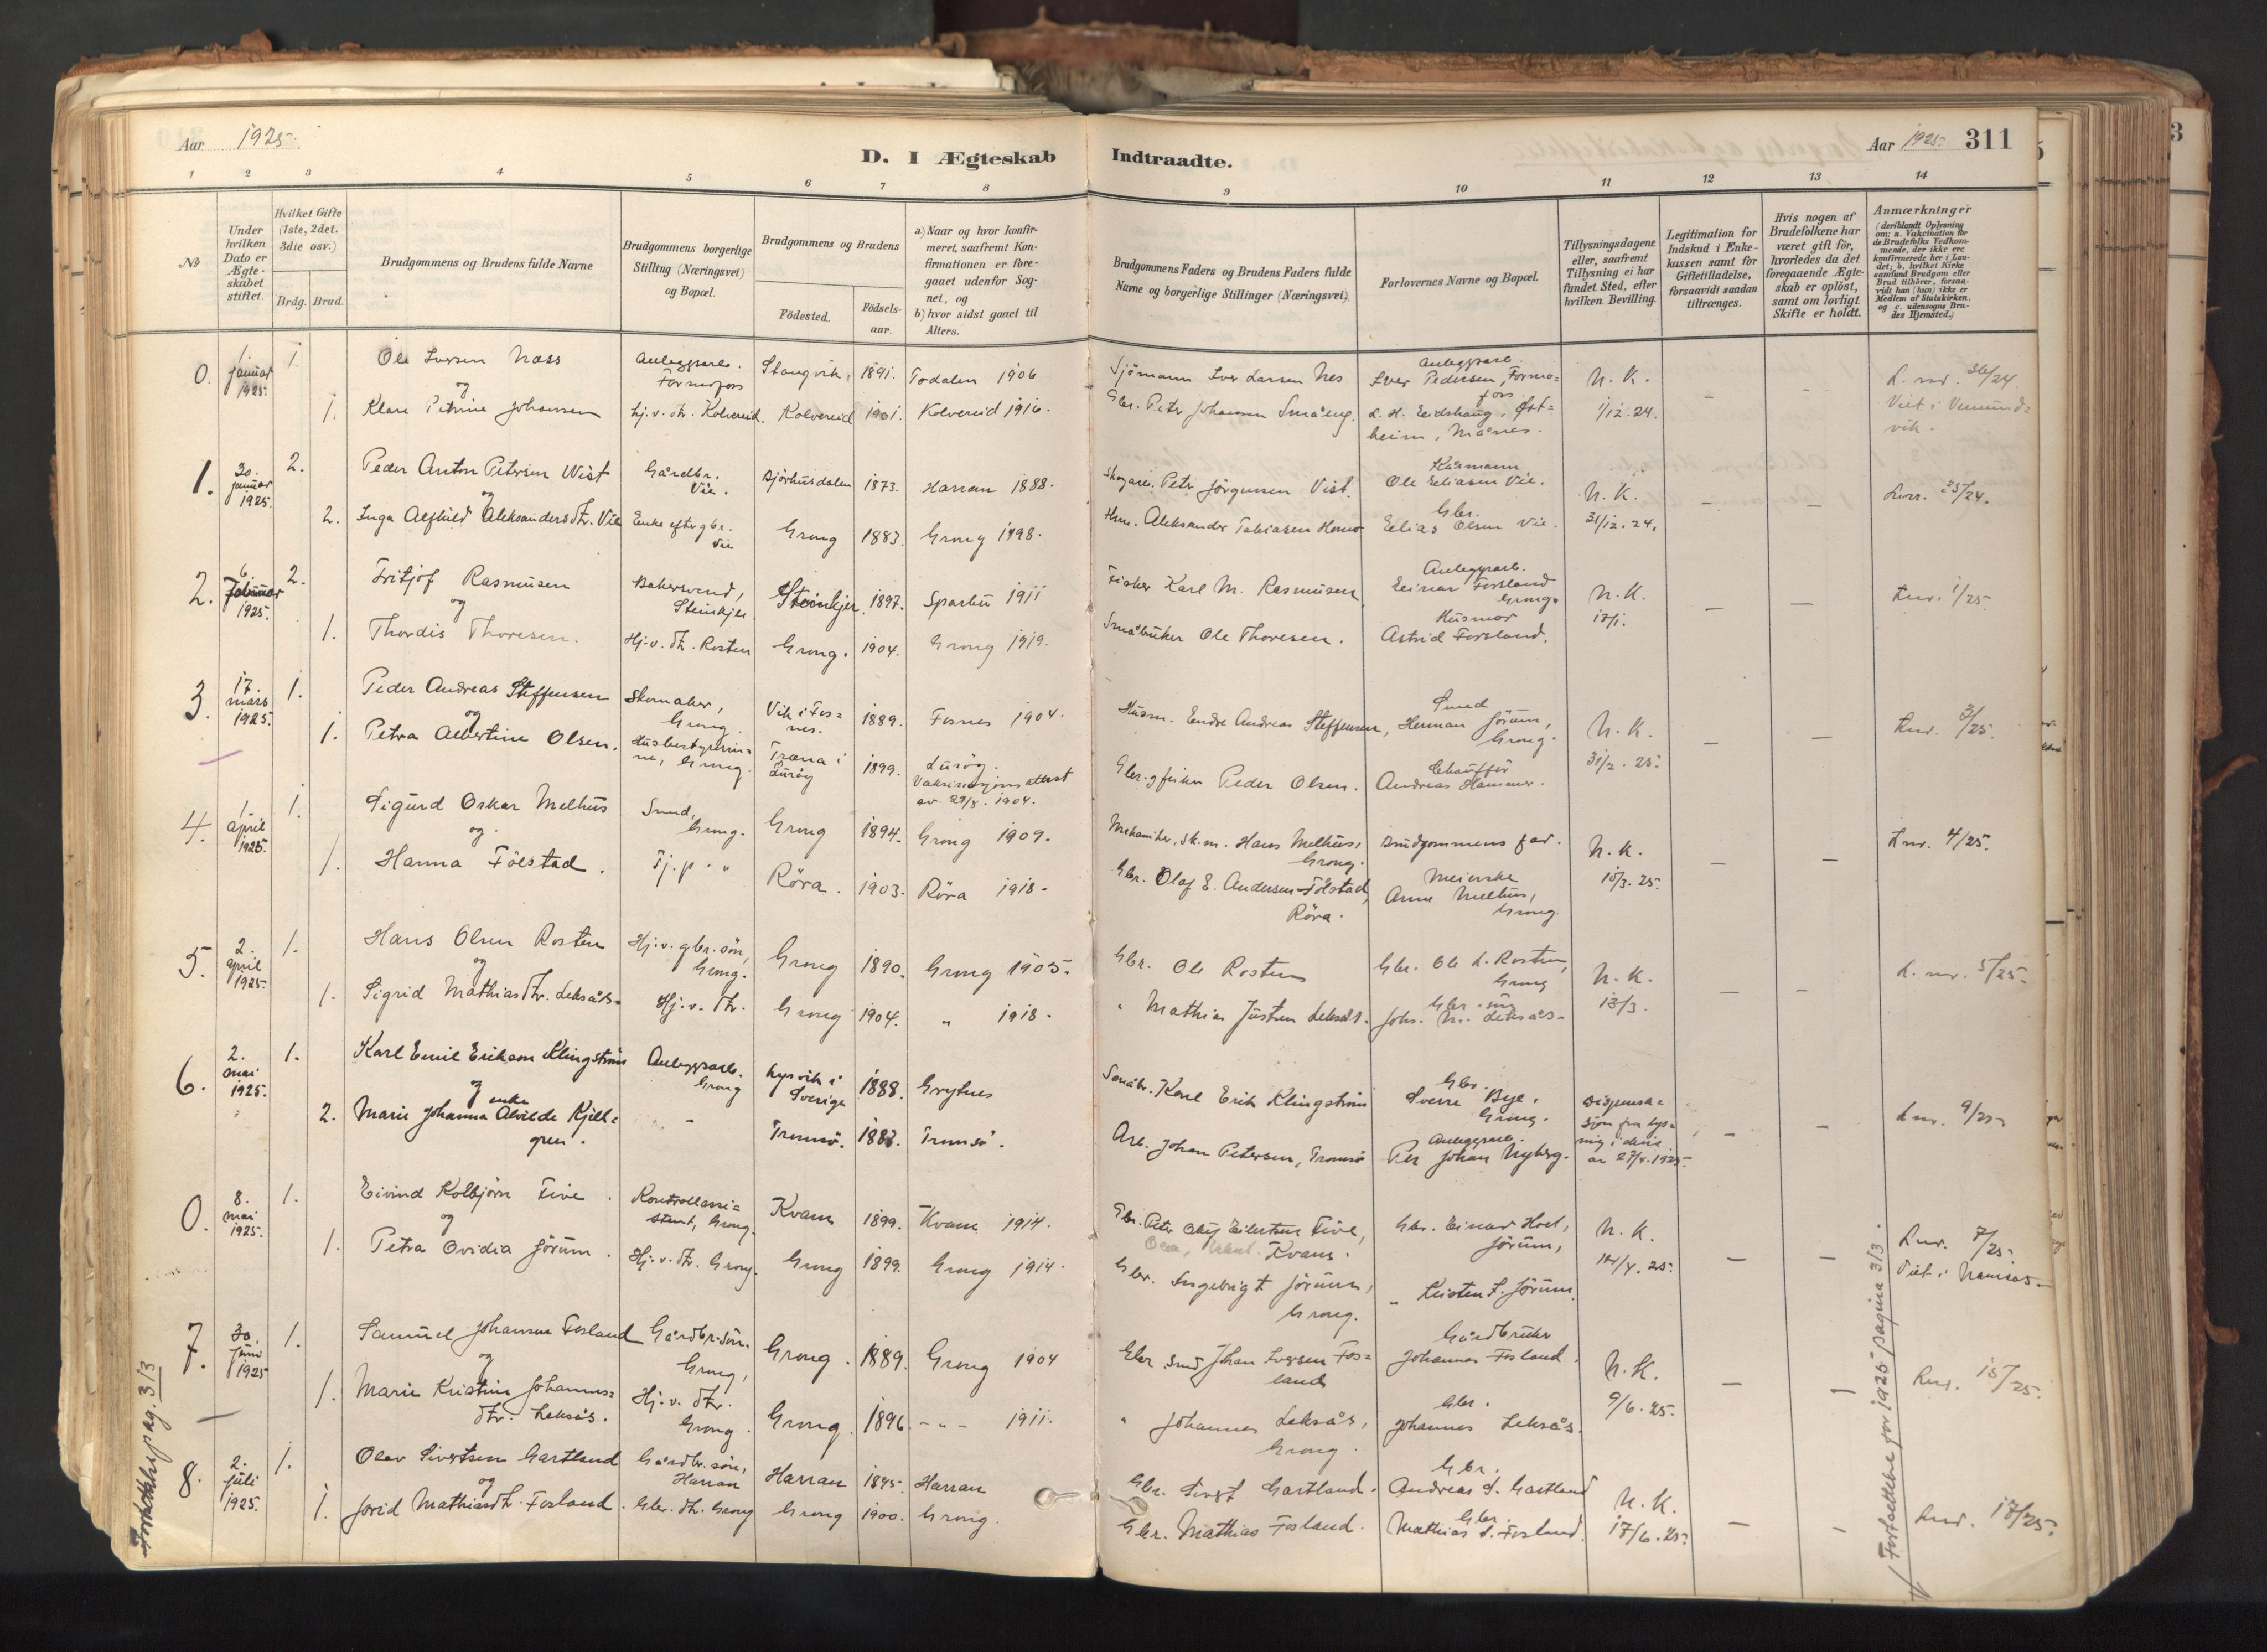 Aar 1925.
D. I Ægteskab
Indtraadte.
Aar 1925. 311
1 2 3 4 5 6 7 8 9 10 11 12 13 14
№
Under
hvilken
Dato er
Ægte-
skabet
stiftet.
Hvilket Gifte
(1ste, 2det,
3die osv.)
Brdg. Brud.
Brudgommens og Brudens fulde Navne
Brudgommens borgerlige
Stilling (Næringsvei)
og Bopæl.
Brudgommens og Brudens
Födested.
Födsels-
aar.
a) Naar og hvor konfir-
meret, saafremt Kon-
firmationen er fore-
gaaet udenfor Sog-
net, og
b) hvor sidst gaaet til
Alters.
Brudgommens Faders og Brudens Faders fulde
Navne og borgerlige Stillinger (Næringsvei).
Forlovernes Navne og Bopæl.
Tillysningsdagene
eller, saafremt
Tillysning ei har
fundet Sted, efter
hvilken Bevilling.
Legitimation for
Indskud i Enke-
kassen samt for
Giftetilladelse,
forsaavidt saadan
tiltrænges.
Hvis nogen af
Brudefolkene har
været gift för,
hvorledes da det
foregaaende Ægte-
skab er oplöst,
samt om lovligt
Skifte er holdt.
Anmærkninger
(deriblandt Oplysning
om: a. Vakcination for
de Brudefolks Vedkom-
mende, der ikke ere
konfirmerede her i Lan-
det; b. hvilket Kirke
samfund Brudgom eller
Brud tilhörer, forsaa-
vidt han (hun) ikke er
Medlem af Statskirken,
og c. udensogns Bru-
des Hjemsted.)
0. 1. januar 1925. 1. Ole Iversen Næss Anleggsarb. Formofoss Stangvik, 1891. Todalen 1906 Sjömann Iver Larsen Nes Anleggsarb. Iver Pedersen, Formo= foss N. K. - - L. nr. 36/24.
og
1. Klara Petrine Johansen hj.v. dtr. Kolvereid. Kolvereid 1901. Kolvereid 1916. Gbr. Petr Johansen Småeng. L. H. Eidshaug, Øst= heim, Månes. 1/12.24. Viet i Vemund= vik.
1. 30. januar 1925. 2. Peder Anton Petersen Wist Gårdbr. Vie. Bjørhusdalen 1873. Harran 1888. Skogarb. Petr Jörgensen Vist. Ole Eliasen Vie. N. K. - - Lnr. 25/24.
og
2. Inga Alfhild Aleksandersdtr. Vie Enke efter gbr. Vie Grong 1883. Grong 1898. Hsm. Aleksander Tobiasen Homo Gbr. Elias Olsen Vie. 31/12.24.
2. 6. Februar 1925. 2. Fritjof Rasmusen Bakersvend, Steinkjer Steinkjer 1897. Sparbu 1911 Fisker Karl M. Rasmusen Anleggsarb. Einar Forsland Grong. N. K. - - Lnr. 1/25.
og
1. Thordis Thoresen. Hj.v. dtr. Rosten Grong. 1904. Grong 1919. Småbruker Ole Thoresen. Husmor Astrid Forsland. 17/1.
3. 17. mars 1925. 1. Peder Andreas Steffensen Skomaker, Grong Vik i Fos= nes. 1889. Fosnes 1904. Husm. Endre Andreas Steffensen, Smed Herman Jörum, Grong. N. K. - - Lnr. 3/25.
og
1. Petra Albertine Olsen. Husbestyrerin= ne, Grong. Træna i Lurøy 1899. Lurøy. Vaksinasjonsattest av 29/8. 1904. Gbr. og fisker Peder Olsen. Chauffør Andreas Hammer. 31/2. 25.
4. 1. april 1925. 1. Sigurd Oskar Melhus Smed, Grong. Grong 1894. Grong 1909. Mekaniker, Sk.m. Hans Melhus, Grong. Brudgommens far. N. K. - - Lnr. 4/25.
og
1. Hanna Fölstad. Tj. p. " Röra. 1903. Röra 1918. Gbr. Olaf E. Andersen-Fölstad, Röra. Meierske Anna Melhus, Grong. 10/3. 25.
5. 2. april 1925. 1. Hans Olsen Rosten Hj.v. gbr. sön, Grong. Grong 1890. Grong 1905. Gbr. Ole Rosten Gbr. Ole L. Rosten, Grong N. K. - - L. nr. 5/25.
og
1. Sigrid Mathiasdtr. Leksås. Hj.v. dtr. Grong 1904. " 1918. " Mathias Justsen Leksås. Johs. M. Leksås. 13/3.
6. 2. mai 1925. 1. Karl Emil Erikson Klingström Anleggsarb. Grong Lysvik i Sverige 1888. Grytnes Småbr. Karl Erik Klingström Gbr. Sverre Bye, Grong. Dispensa= sjon fra lys= ning - - Lnr. 9/25
og enke
2. Marie Johanna Alvilde Kjell= gren. - Tromsö. 1883. Tromsö. Arb. Johan Petersen, Tromsö Anleggsarb. Per Johan Nyberg. av 27/4. 1925.
0. 8. mai 1925. 1. Eivind Kolbjörn Five. Kontrollassi= stent, Grong. Kvam 1899. Kvam 1914. Gbr. Peter Olaf Eilertsen Five, Kvam. Gbr. Einar Hoel, Jörum, N. K. - - Lnr. 7/25.
og
1. Petra Ovidia Jörum. Hj.v. dtr. Grong. Grong 1899. Grong 1914. Gbr. Ingebrigt Jörum, Grong. " Kristen I. Jörum. 14/4. 25. Viet i Namsos.
7. 30. juni 1925 1. Samuel Johansen Fosland Gårdbr. sön. Grong, Grong. 1889. Grong 1904 Gbr. Smed Johan Iversen Fos= land Gårdbruker Johannes Fosland. N. K. - - Lnr. 15/25.
og
1. Marie Kristine Johannes= dtr. Leksås. Hj.v. dtr. Grong. Grong. 1896. - " - 1911. " Johannes Leksås, Grong. Gbr. Johannes Leksås. 9/6. 25.
8. 2. juli 1925. 1. Olav Sivertsen Gartland Gårdbr. sön, Harran Harran 1895. Harran Gbr. Sivert Gartland. Gbr. Andreas S. Gartland N. K. - - Lnr. 17/25.
og
1. Jorid Mathiasdtr. Fosland. Gbr. dtr. Grong Grong 1900. Grong. Gbr. Mathias Fosland. Gbr. Mathias S. Fosland. 17/6. 25.
Fortsettelse pag. 313
Fortsettelse for 1925 pagina 313.